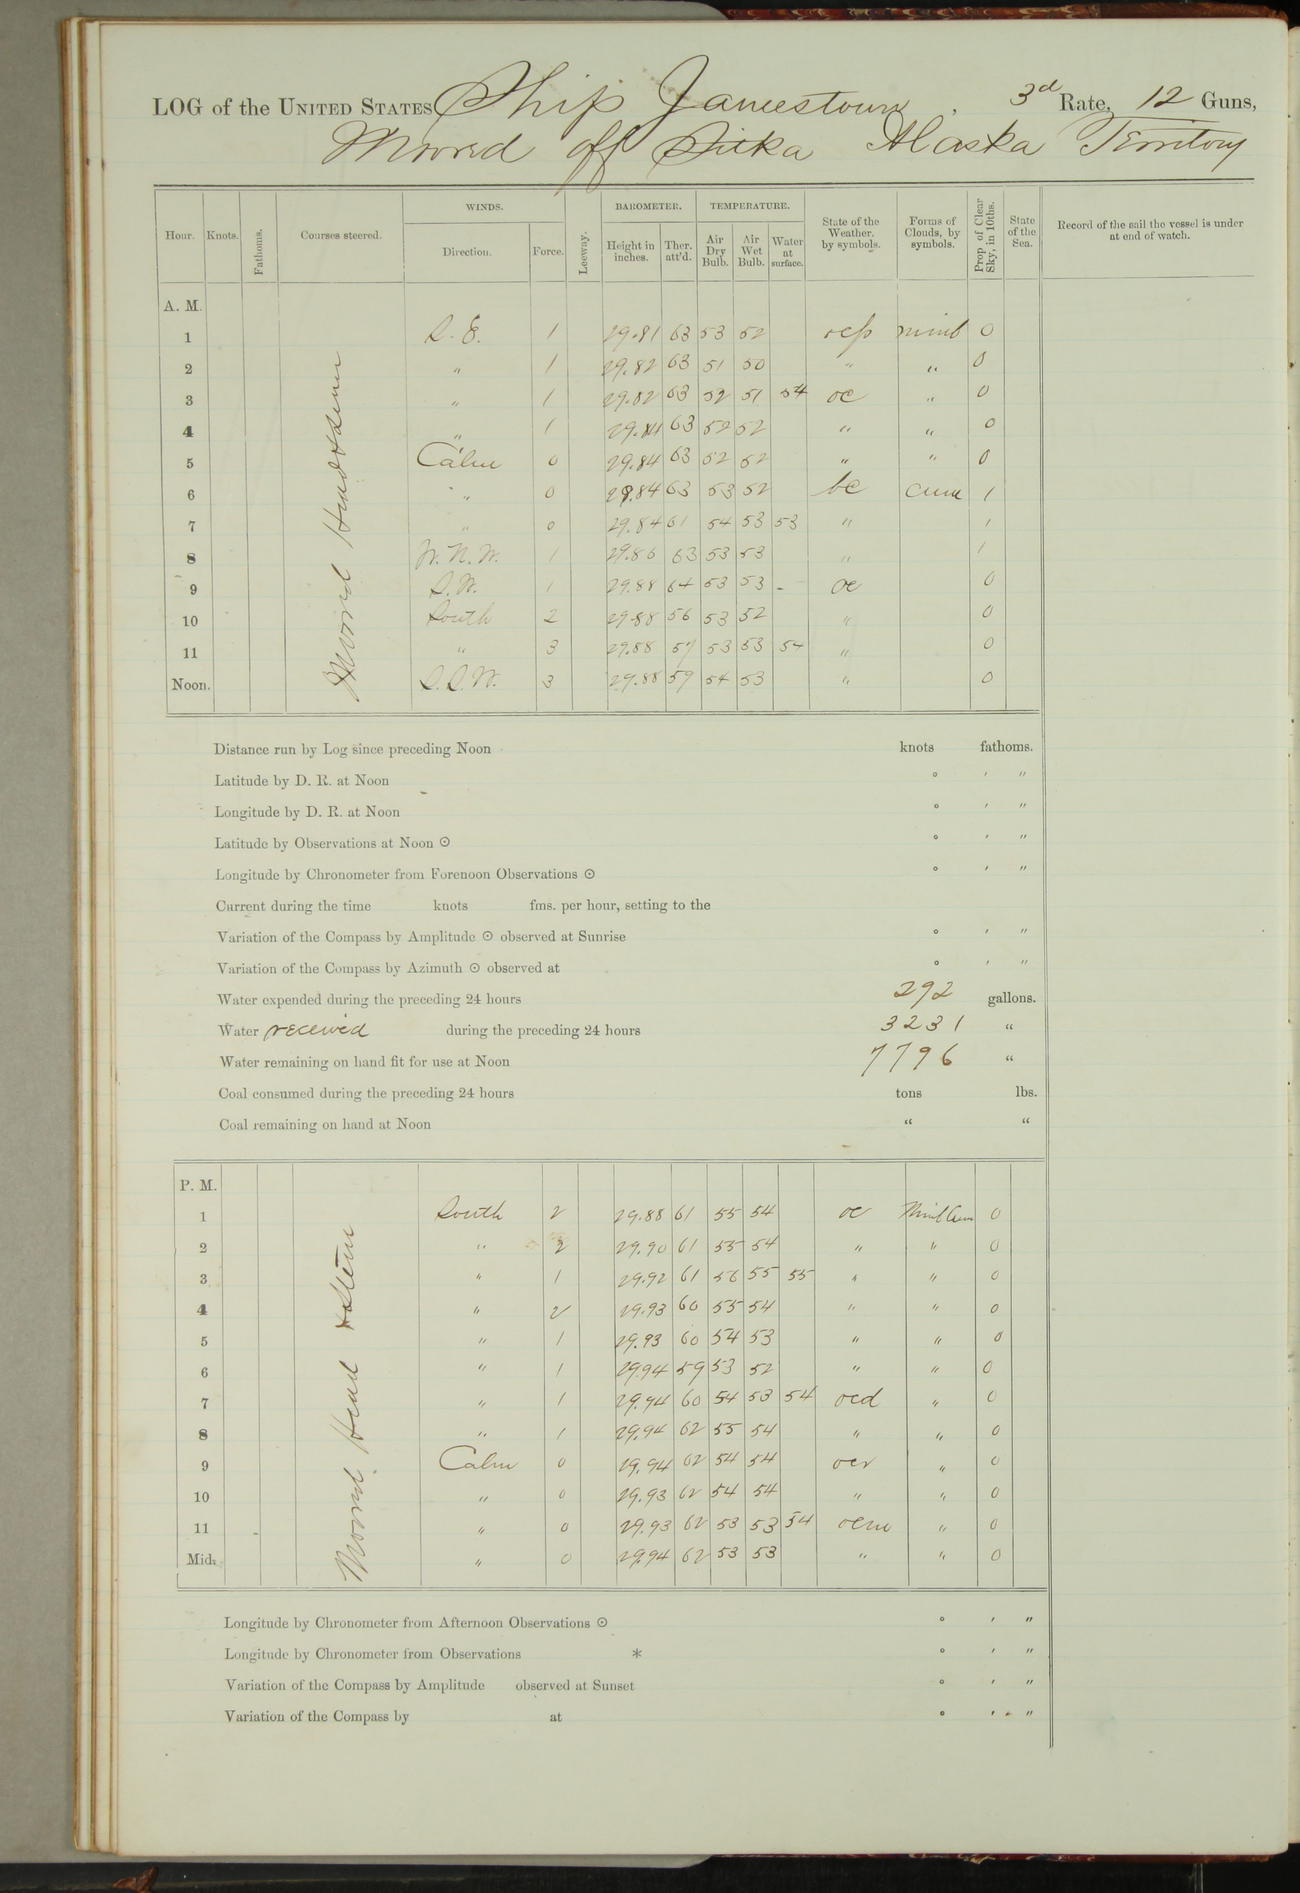 LOG of the UNITED STATES Ship Jamestown, 3d Rate, 12 Guns,
Moored off Sitka Alaska Territory
Hour. Knots. Fathoms. Courses steered. WINDS. Direction. Force. Leeway. BAROMETER. Height in inches. Ther. att'd. TEMPERATURE. Air Dry Bulb. Air Wet Bulb. Water at surface. State of the Weather. by symbols. Forms of Clouds, by symbols. Prop of Clear Sky, in 10ths. State of the Sea. Record of the sail the vessel is under at end of watch.
A. M.
Moored Head & Stern
1 S. E. 1 29.81 63 53 52 ocp nimb 0
2 " 1 29.82 63 51 50 " " 0
3 " 1 29.82 63 52 51 54 oc " 0
4 " 1 63 52 52 " " 0
5 Calm 0 29.84 63 52 52 " " 0
6 " 0 29.84 63 53 52 bc Cum 1
7 " 0 29.84 61 54 53 53 " 1
8 W. N. W. 1 29.86 63 53 53 " 1
9 S. W. 1 29.88 64 53 53 - oc 0
10 South 2 29.88 56 53 52 " 0
11 " 3 29.88 57 53 53 54 " 0
Noon. S. S. W. 3 29.88 59 54 53 " 0
Distance run by Log since preceding Noon knots fathoms.
Latitude by D. R. at Noon ° ' "
Longitude by D. R. at Noon ° ' "
Latitude by Observations at Noon ☉ ° ' "
Longitude by Chronometer from Forenoon Observations ☉ ° ' "
Current during the time knots fms. per hour, setting to the
Variation of the Compass by Amplitude ☉ observed at Sunrise ° ' "
Variation of the Compass by Azimuth ☉ observed at ° ' "
Water expended during the preceding 24 hours 292 gallons.
Water received during the preceding 24 hours 3231 "
Water remaining on hand fit for use at Noon 7796 "
Coal consumed during the preceding 24 hours tons lbs.
Coal remaining on hand at Noon " "
P. M.
Moored Head & Stern
1 South 2 29.88 61 55 54 oc Nimb Cum 0
2 " 2 29.90 61 55 54 " " 0
3 " 1 29.92 61 56 55 55 " " 0
4 " 2 29.93 60 55 54 " " 0
5 " 1 29.93 60 54 53 " " 0
6 " 1 29.94 59 53 52 " " 0
7 " 1 29.94 60 54 53 54 ocd " 0
8 " 1 29.94 62 55 54 " " 0
9 Calm 0 29.94 62 54 54 ocr " 0
10 " 0 29.93 62 54 54 " " 0
11 " 0 29.93 62 53 53 54 ocm " 0
Mid. " 0 29.94 62 53 53 " " 0
Longitude by Chronometer from Afternoon Observations ☉ ° ' "
Longitude by Chronometer from Observations * ° ' "
Variation of the Compass by Amplitude observed at Sunset ° ' "
Variation of the Compass by at ° ' "